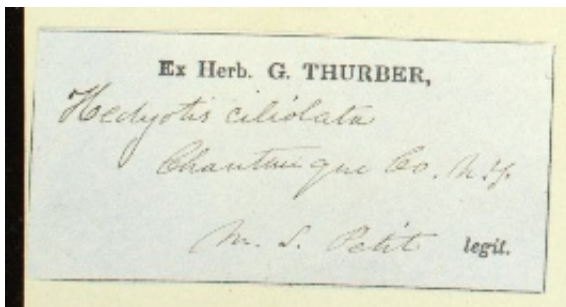 Ex Herb. G. THURBER,
Hedyotis ciliolata
Chautauque Co. N.Y.
M. S. Petit legit.